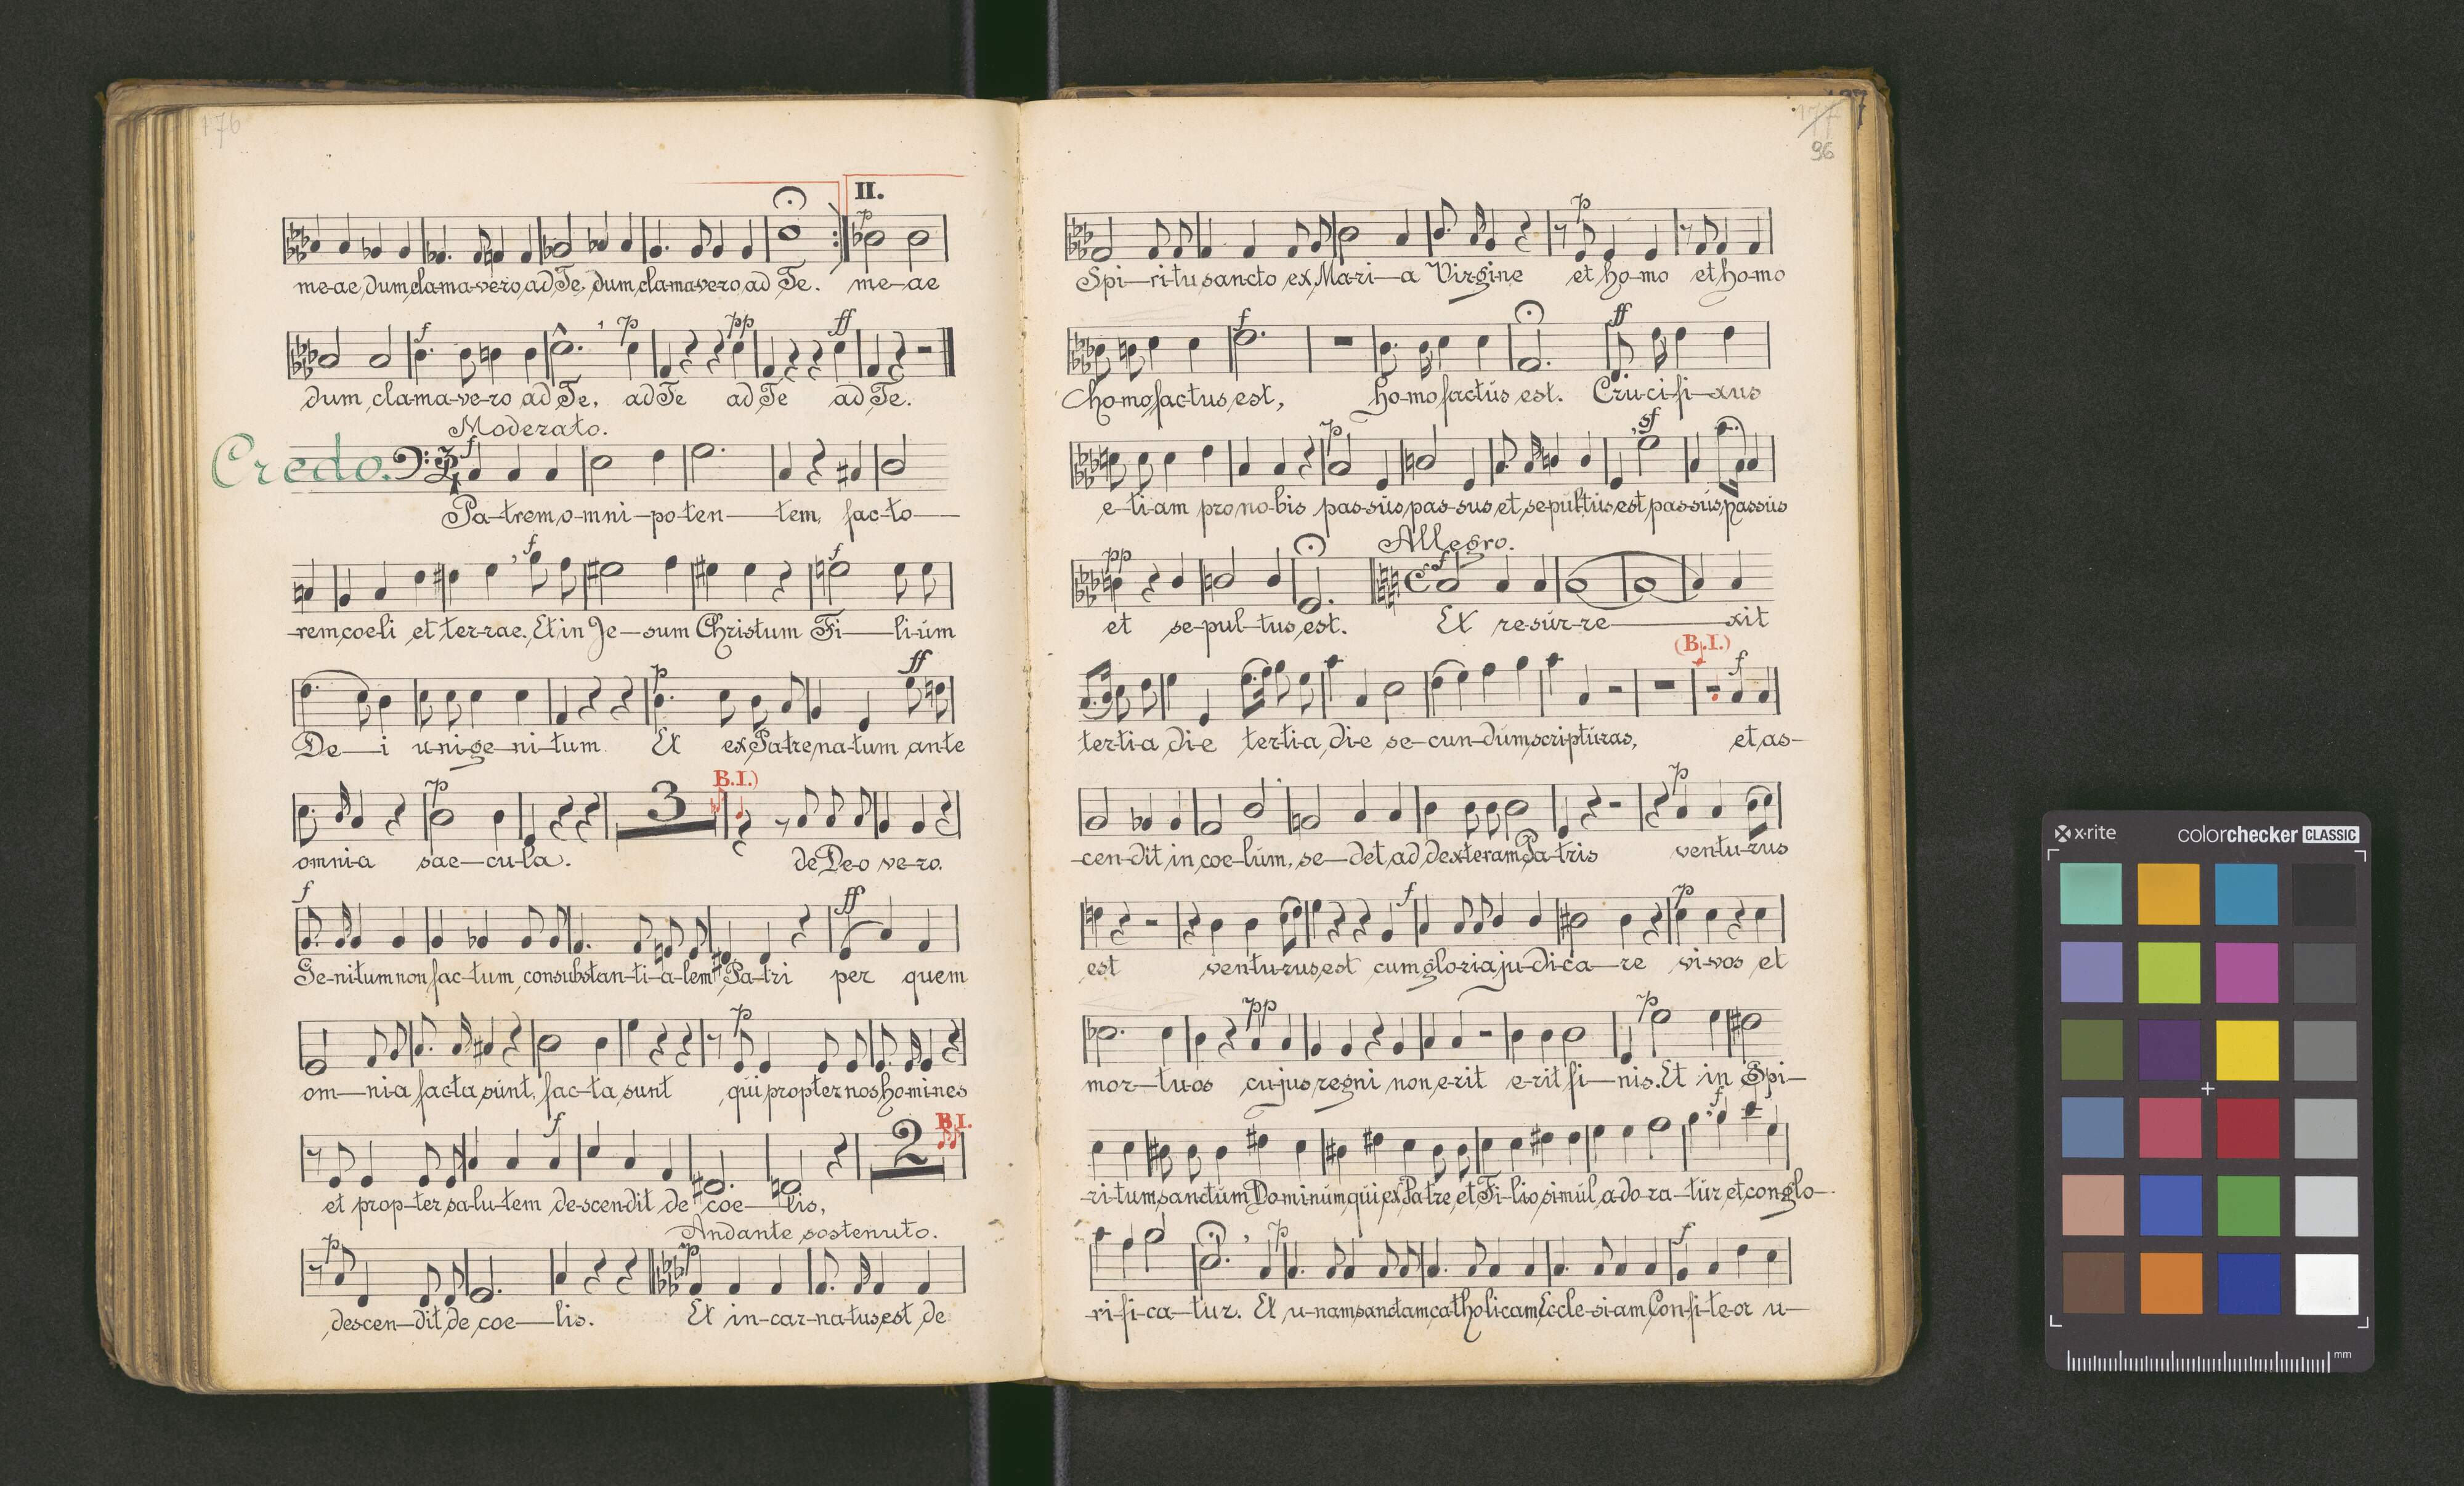 176
II.
p
me-ae, dum cla-ma-vero, ad Te, dum, cla-ma-vero, ad Te. me-ae
f p pp ff
dum, cla-ma-ve-ro ad Te, ad Te ad Te ad Te.
Moderato.
Credo. 3 4 f
Pa-trem, o-mni-po-ten-tem, fac-to-
f f
-rem, coe-li et ter-rae. Et in Je-sum Christum Fi-li-um
p ff
De-i u-ni-ge-ni-tum. Et ex Pa-tre na-tum an-te
B.I.)
p 3
omni-a sae-cu-la. de De-o ve-ro.
f ff
Ge-ni-tum non fac-tum, con-substan-ti-a-lem Pa-tri per quem
p
om-ni-a fac-ta sunt, fac-ta sunt qui propter nos ho-mi-nes
f 2 B.I.
et prop-ter sa-lu-tem de-scen-dit de coe-lis,
Andante sostenuto.
p p
descen-dit, de coe-lis. Et in-car-na-tus, est, de
177
177
96
p
Spi-ri-tu, sancto ex Ma-ri-a Vir-gi-ne et ho-mo et ho-mo
f ff
ho-mo, factus, est, ho-mo factus est. Cru-ci-fi-xus
p sf
e-ti-am pro no-bis pas-sus, pas-sus et, se-pul-tus, est, pas-sus, passus
Allegro.
pp f
et se-pul-tus, est. Et re-sur-re-xit
(B.I.)
f
ter-ti-a di-e ter-ti-a, di-e se-cun-dum, scripturas, et, as-
p
-cen-dit, in, coe-lum, se-det, ad dex-teram Pa-tris ven-tu-rus
f p
est ven-tu-rus, est cum glo-ria, ju-di-ca-re vi-vos et
pp p
mor-tu-os cu-jus, regni non, e-rit e-rit fi-nis. Et in Spi-
f
-ri-tum, sanctum Do-mi-num, qui ex Pa-tre, et Fi-lio, simul, a-do-ra-tur, et, con-glo-
p f
-ri-fi-ca-tur. Et u-nam, sanctam, ca-tho-li-cam, Eccle-si-am, Con-fi-te-or u-
x-rite colorchecker CLASSIC
mm